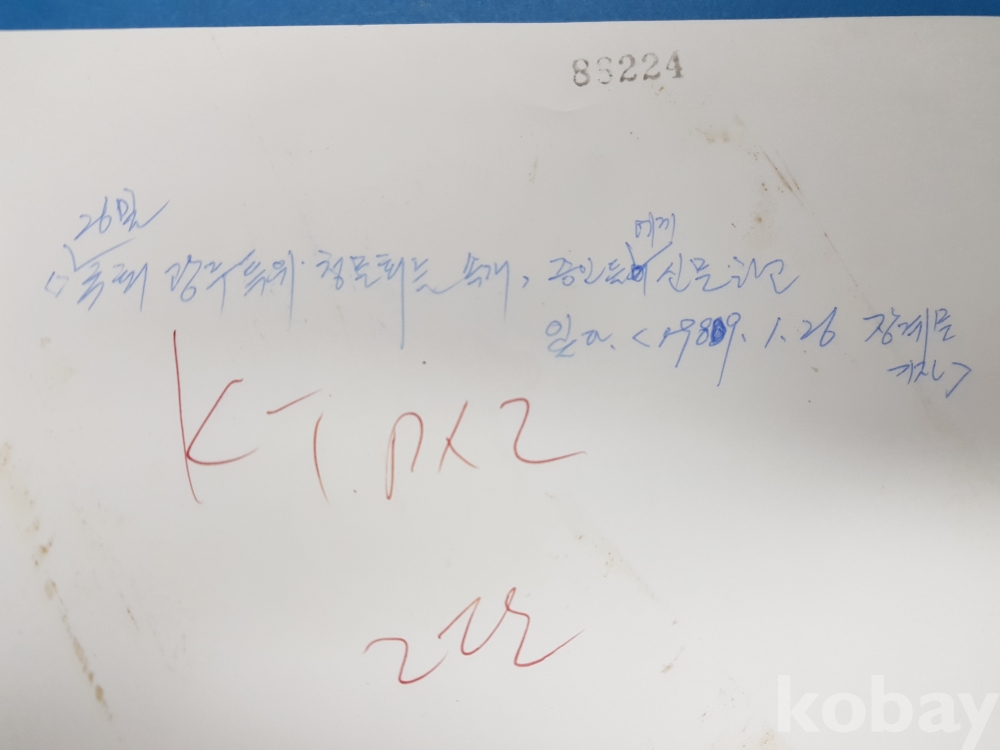 88224
26일
국회 광주특위 청문회는 속개, 증인들에게 신문하고
있다. <1989. 1. 26 장계문
기자>
KT. PX2
kobay